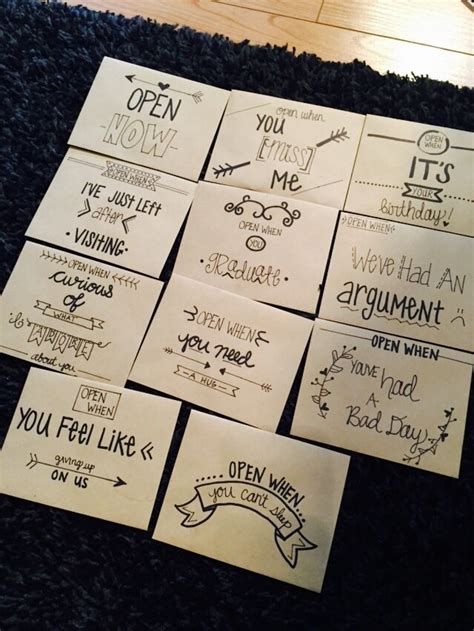 OPEN
NOW
open when
YOU
[miss]
ME
OPEN
WHEN
IT'S
YOUR
birthday!
OPEN WHEN
I'VE JUST LEFT
after
VISITING
OPEN WHEN
YOU
graduate
OPEN WHEN
We've Had An
argument
OPEN WHEN
curious
OF
WHAT
I
ADORE
about you
OPEN WHEN
you need
A HUG
OPEN WHEN
YOU'VE
had
A
Bad Day
OPEN
WHEN
YOU FEEL LIKE
giving up
ON US
OPEN WHEN
you can't sleep